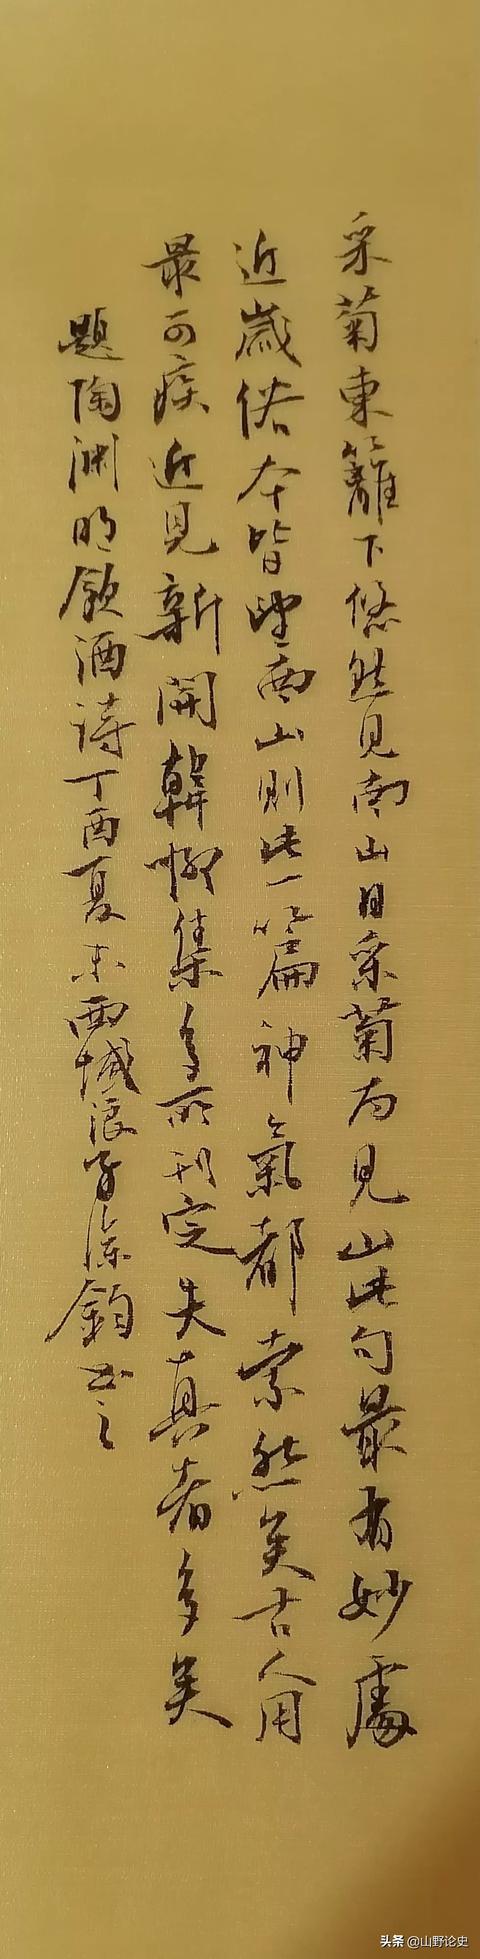 采菊東籬下悠然見南山因采菊而見山此句最有妙處
近歲俗本皆望南山則此一篇神氣都索然矣古人用
最可疾近見新開韓柳集多所刊定失真者多矣
題陶渊明飲酒诗丁酉夏末西域浪子徐鈞书之
头条 @山野论史